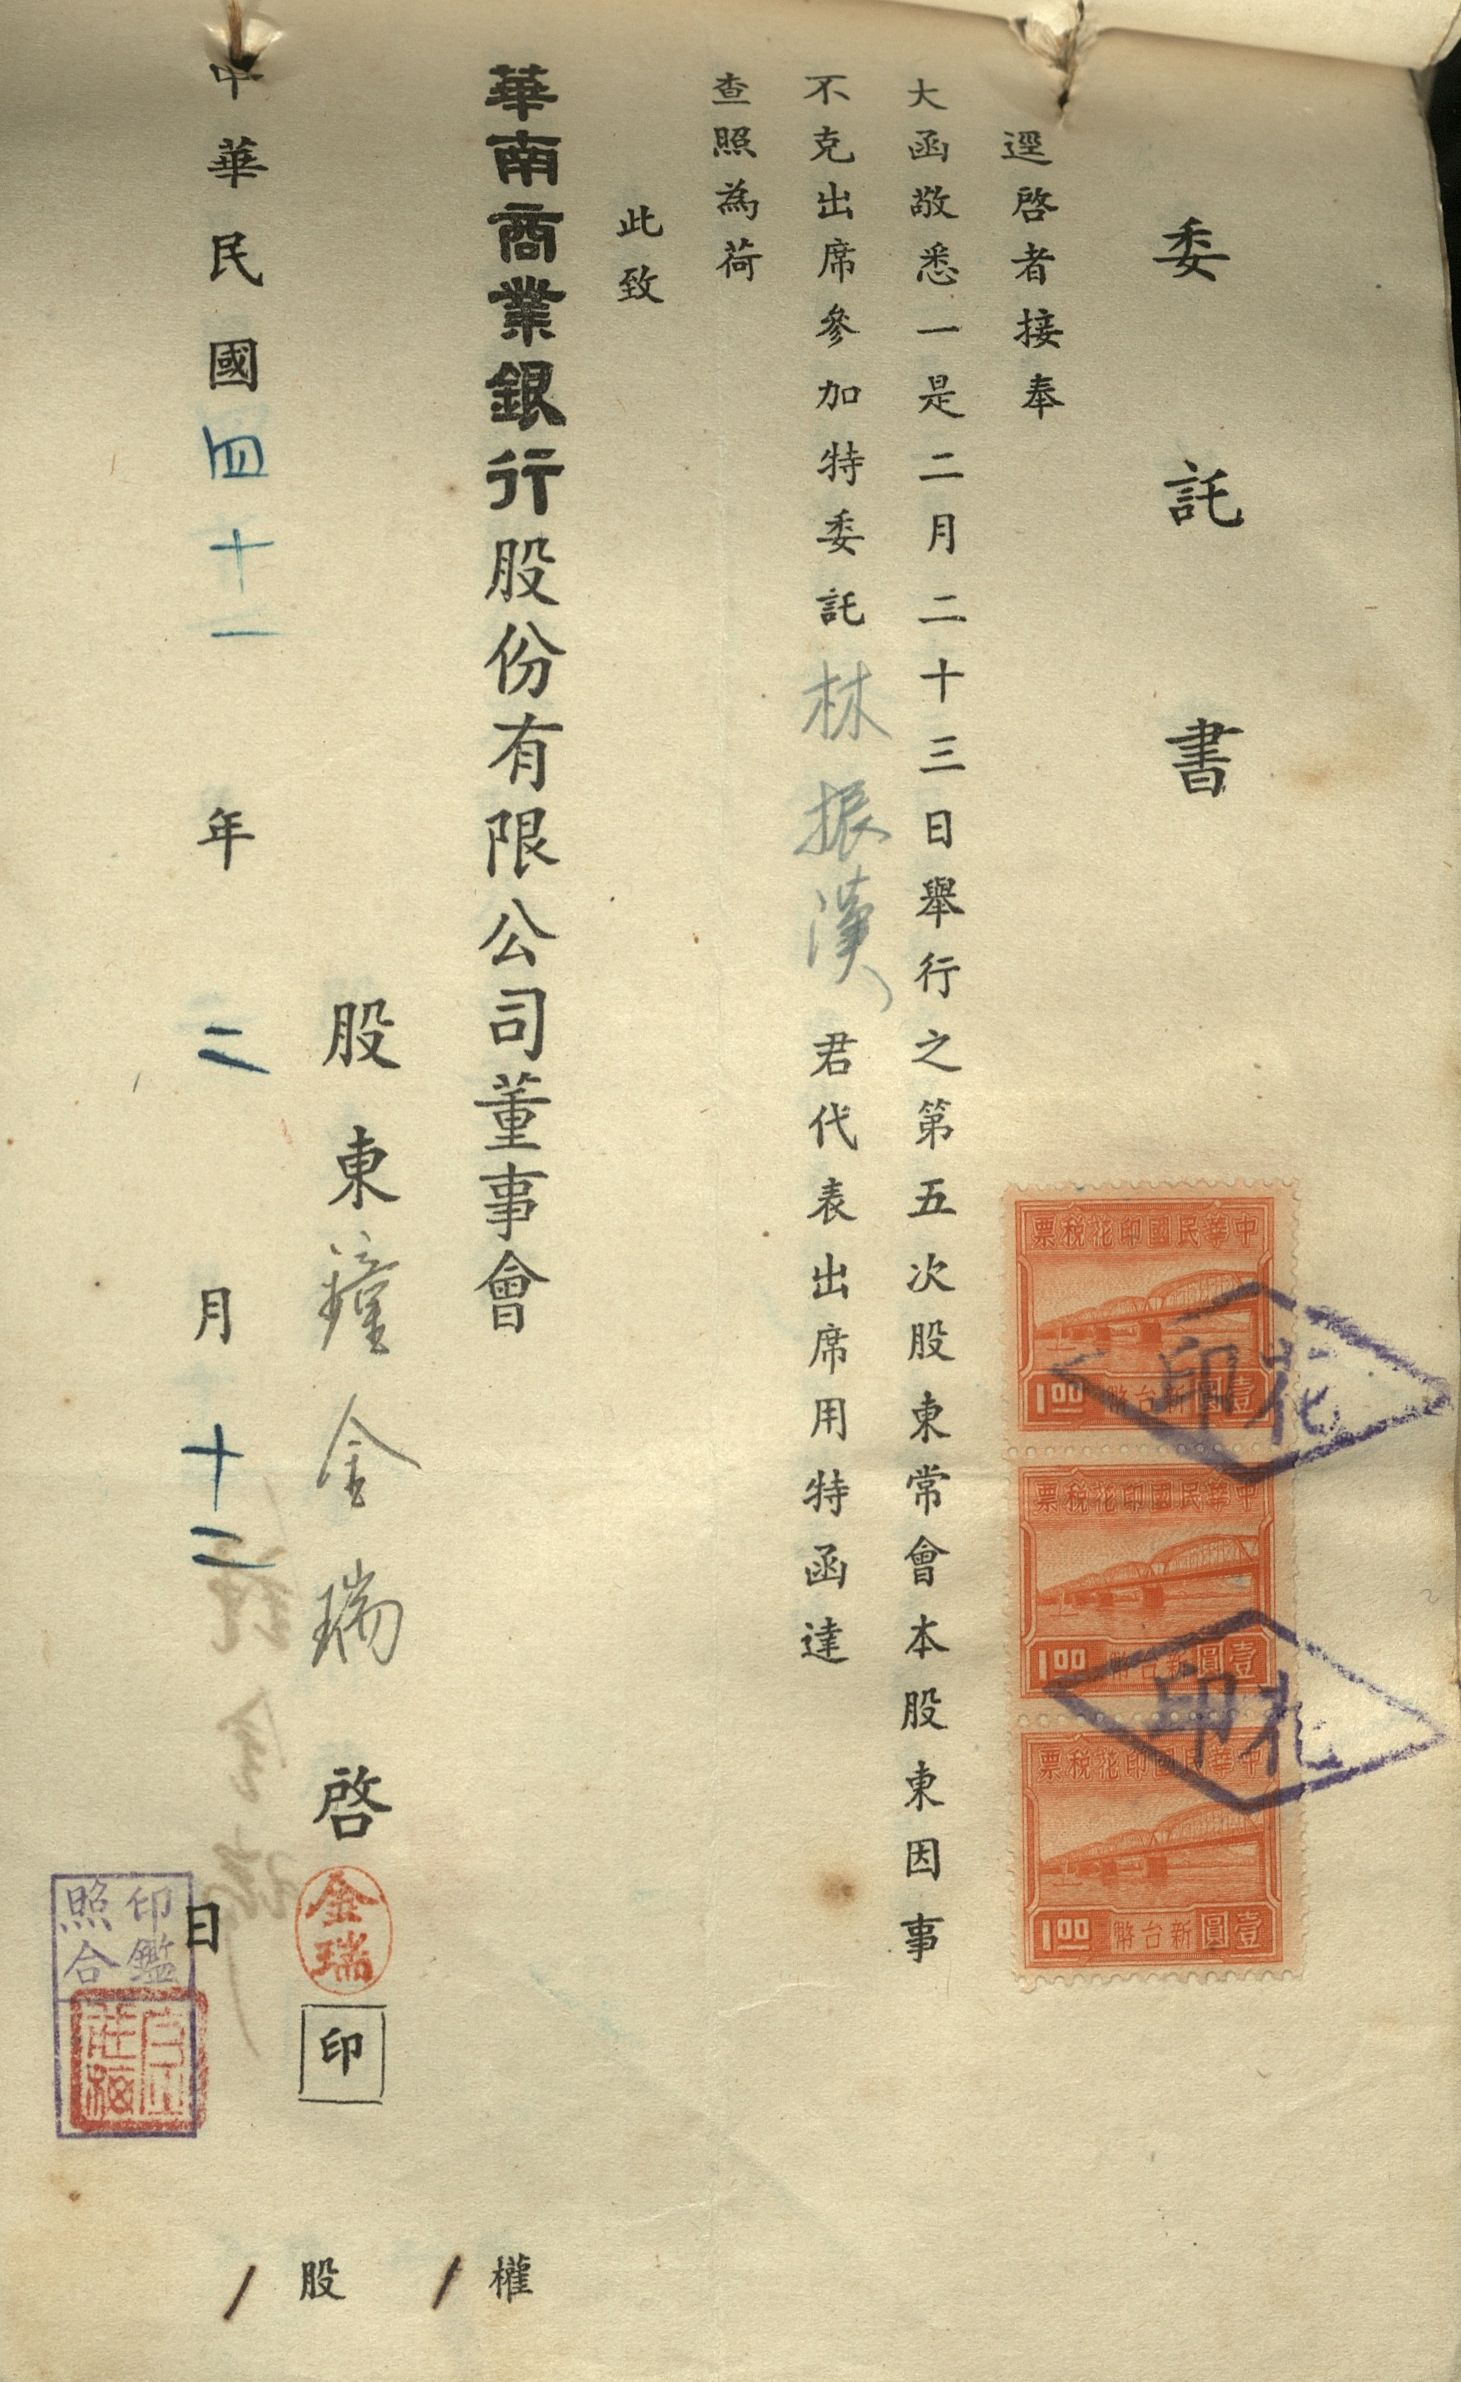 委託書
逕啓者接奉
大函敬悉一是二月二十三日舉行之第五次股東常會本股東因事
不克出席參加特委託林振漢君代表出席用特函達
查照為荷
此致
華南商業銀行股份有限公司董事會
股東 金瑞 啓 印
金瑞
中華民國四十一年二月十二日
印鑑
照合
權 1
股 1
中華民國印花稅票
壹圓新台幣 1.00
中華民國印花稅票
壹圓新台幣 1.00
中華民國印花稅票
壹圓新台幣 1.00
印花
印花